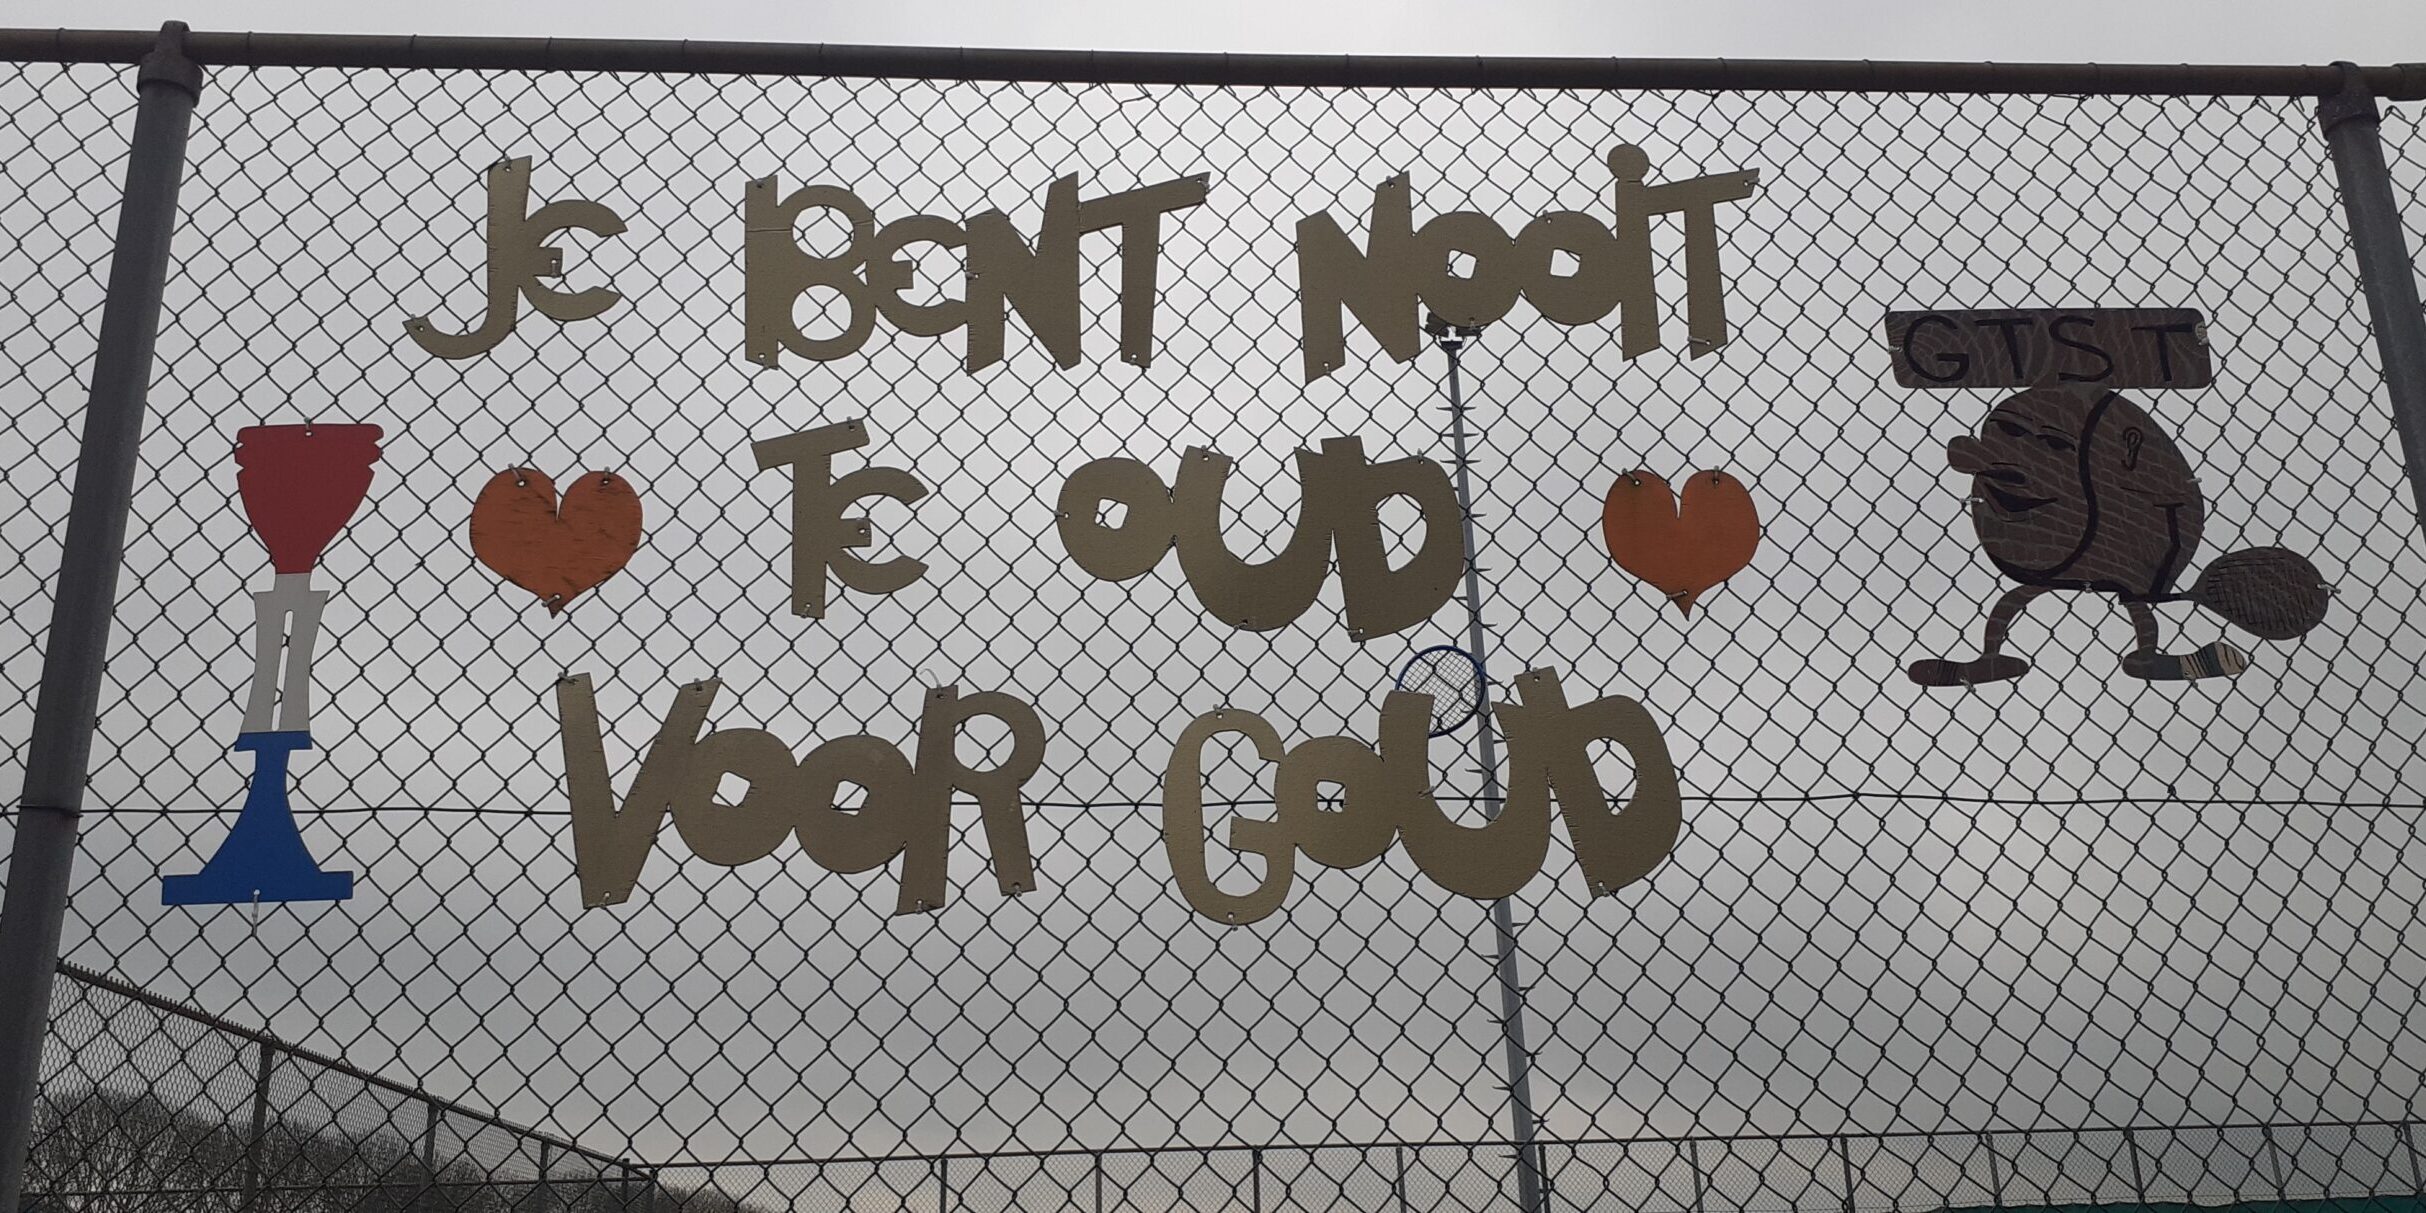 Je BeNT NooiT
GTST
Te oUD
VooR GoUD